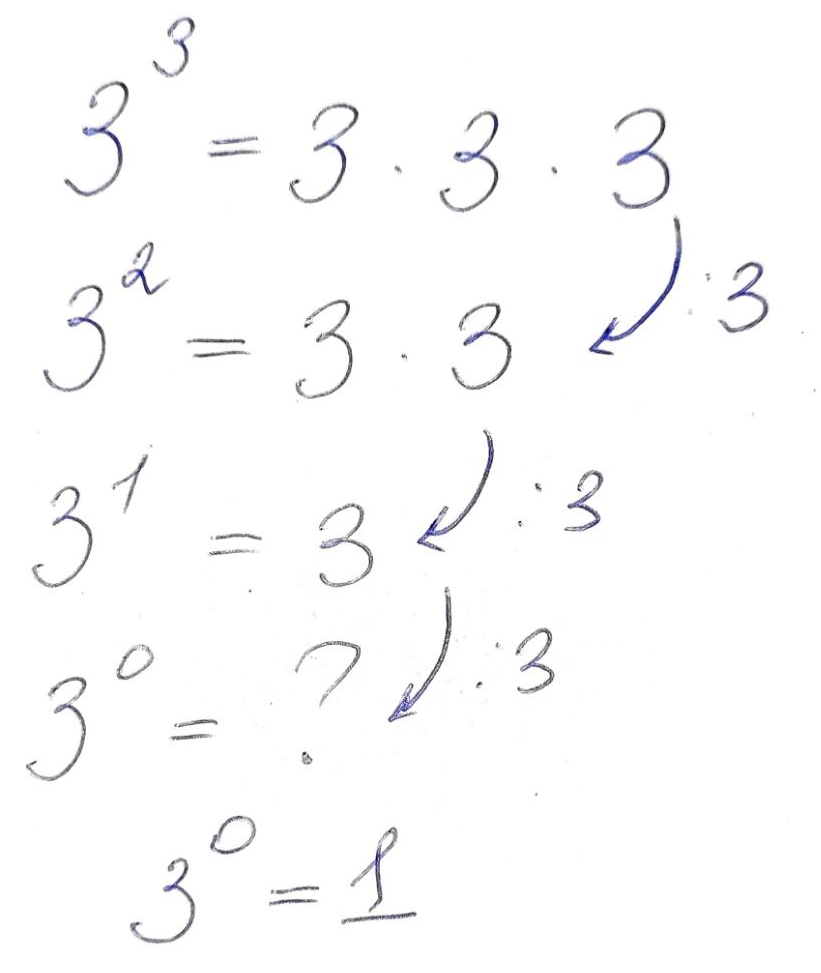 3³ = 3 · 3 · 3
: 3
3² = 3 · 3
: 3
3¹ = 3
: 3
3⁰ = ?
3⁰ = 1